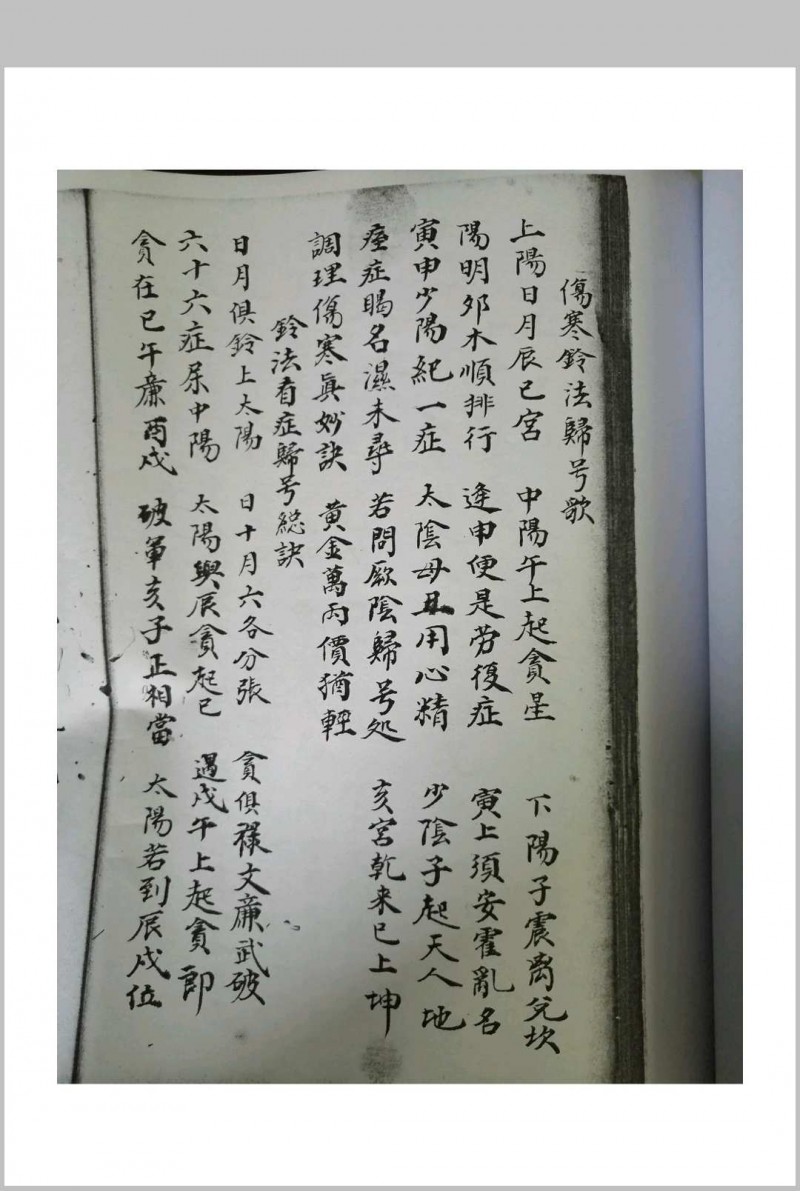 傷寒鈴法歸号歌
上陽日月辰巳宮 中陽午上起貪星 下陽子震离兌坎
陽明夘木順排行 逢申便是劳復症 寅上須安霍亂名
寅申少陽紀一症 太陰丑用心精 少陰子起天人地
痓症暍名濕未尋 若問厥陰歸号処 亥宮乾来巳上坤
調理傷寒真妙訣 黃金萬兩價猶輕
鈴法看症歸号總訣
日月俱鈴上太陽 日十月六各分張 貪俱祿文廉武破
六十六症中陽 太陽與辰貪起巳 遇戌午上起貪郎
貪在巳午廉酉戌 破軍亥子正相當 太陽若到辰戌位